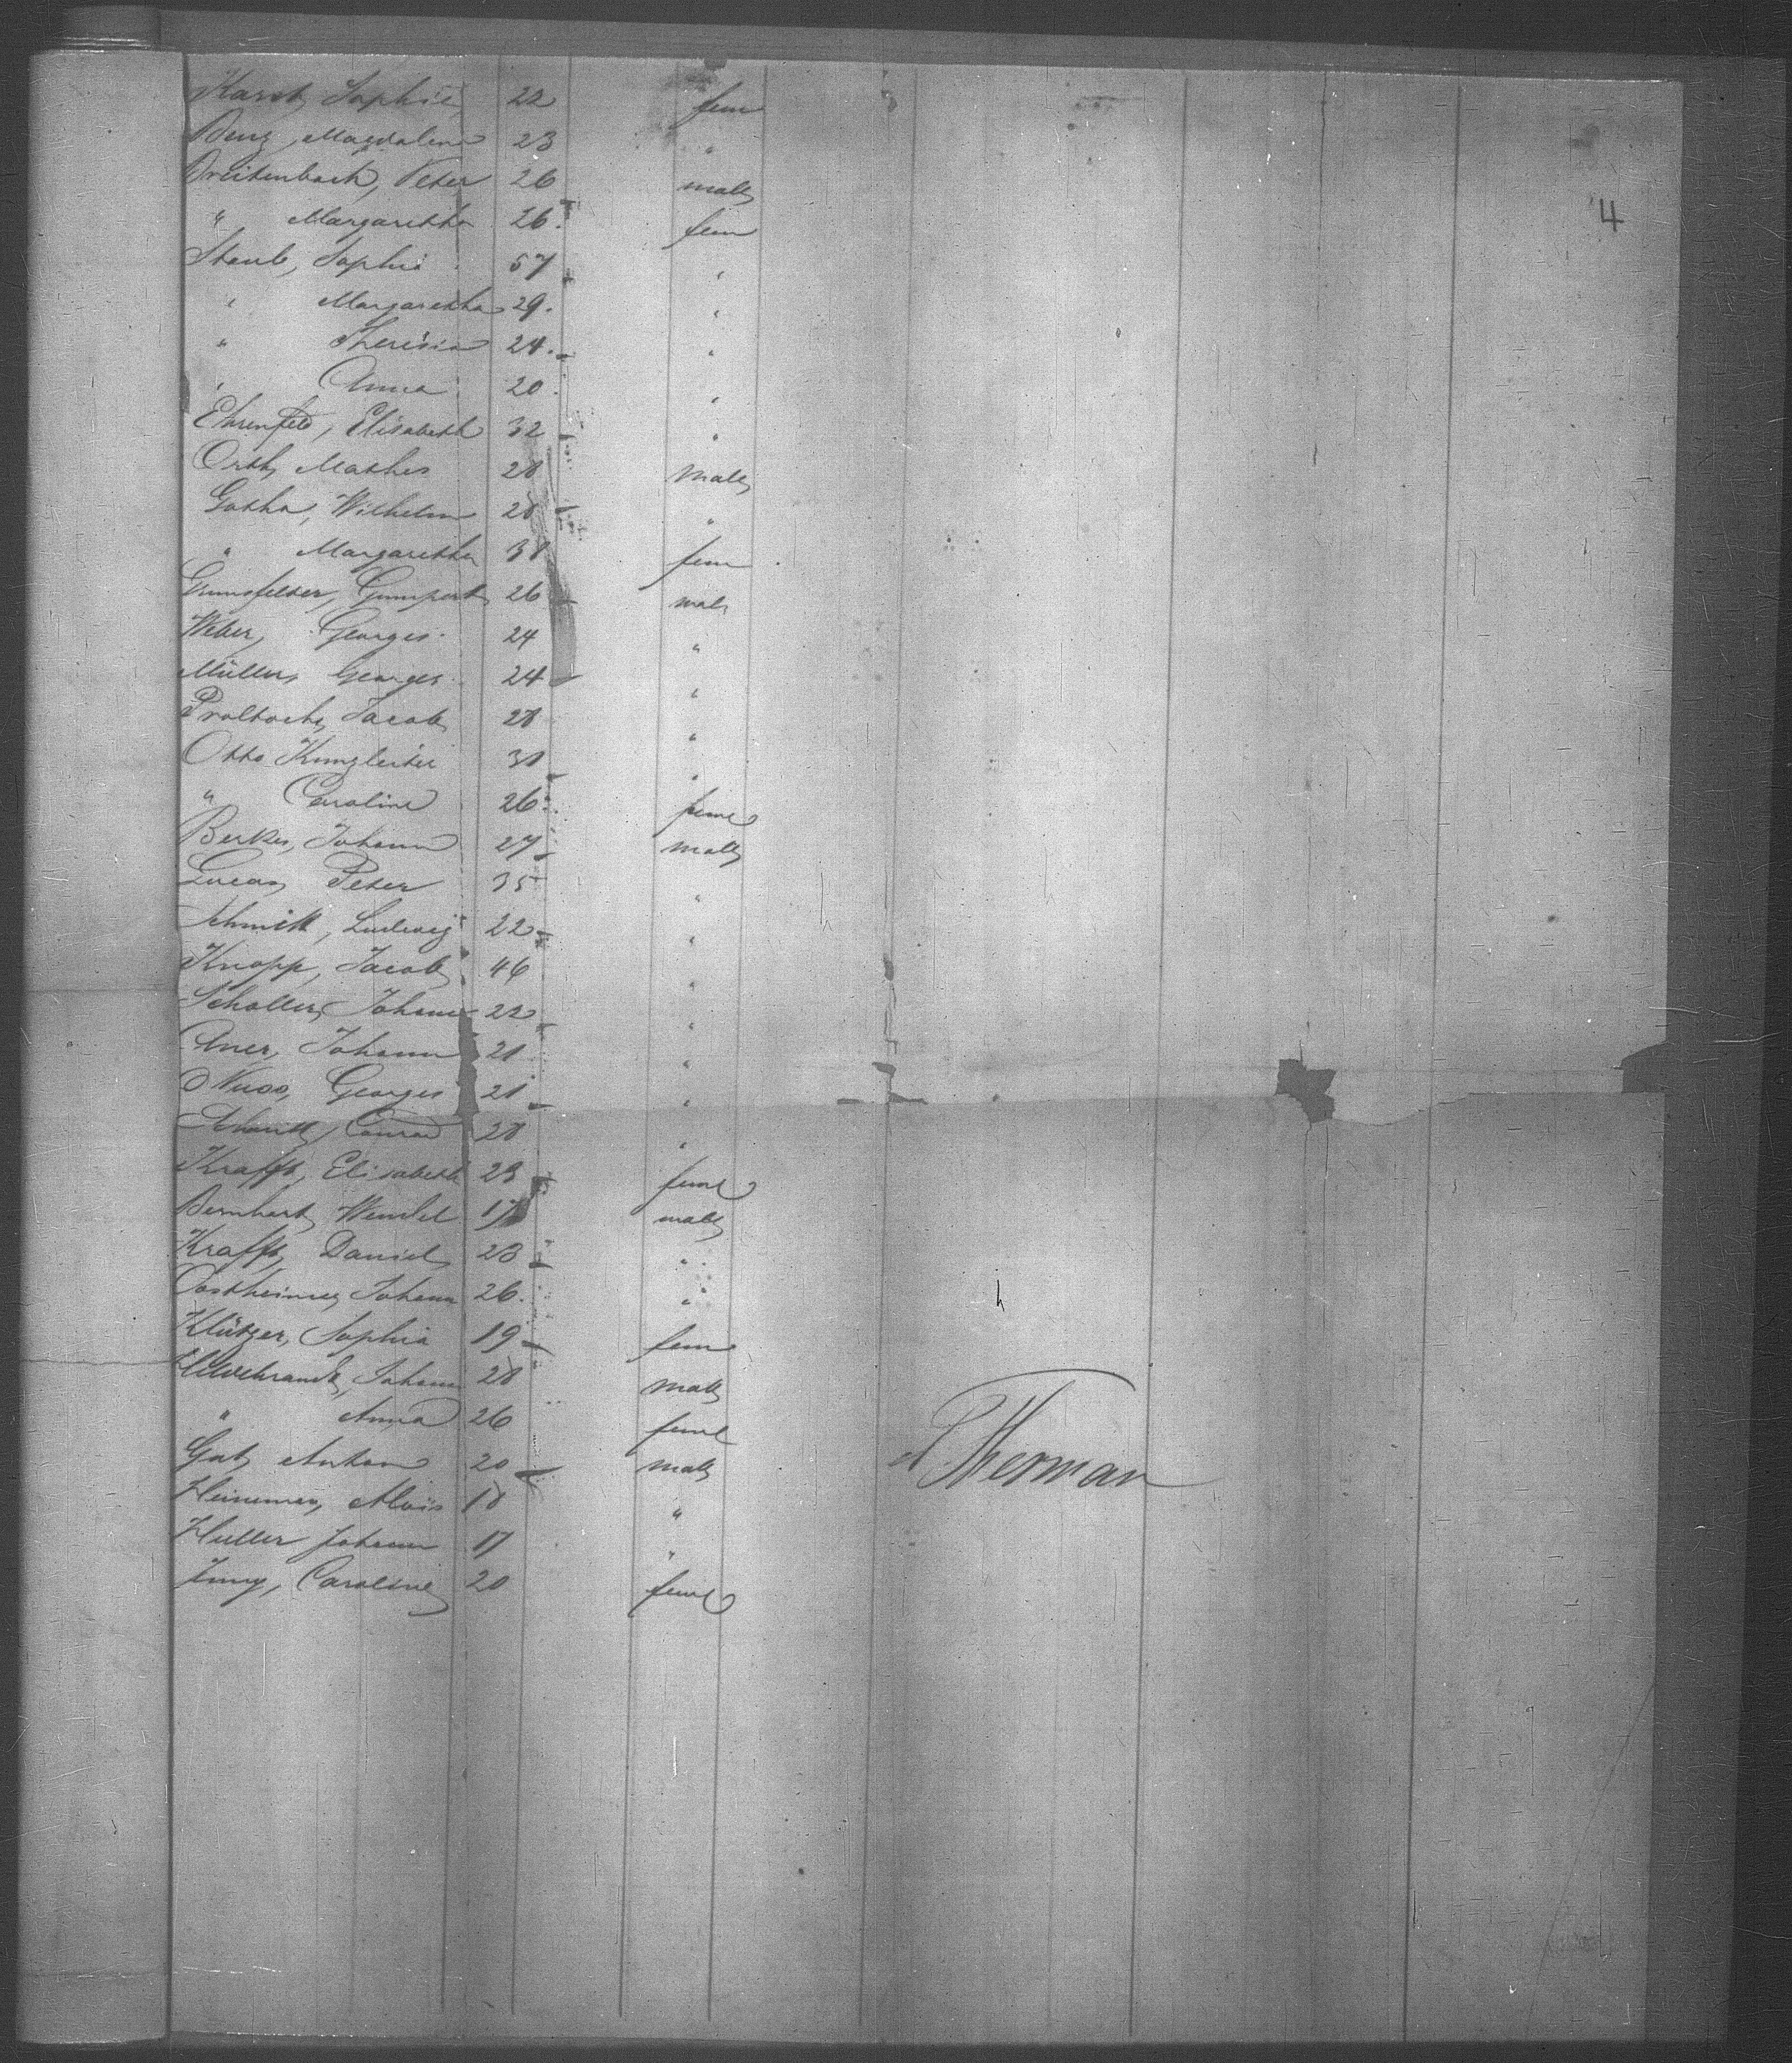 Karst, Sophie 22 fem
Benz, Magdalena 23 "
Breitenbach, Peter 26 male
" Margaretha 26 fem
4
Staub, Sophia 57 "
" Margaretha 29 "
" Theresia 24 "
" Anna 20 "
Ehrenfeld, Elisabeth 32 "
Orth, Mathes 28 male
Gotha, Wilhelm 28 "
" Margaretha 38 fem
Gumpert 26 male
Weber, Georges 24 "
Müller, Georges 24 "
Jacob 28 "
Otto 30 "
" Caroline 26 feml
Berkes, Johann 27 male
Lucas, Peter 35 "
Schmitt, Ludwig 22 "
Knapp, Jacob 46 "
Scholler, Johann 22 "
Johann 21 "
Nuss, Georges 21 "
Schmitt, Conrad 28 "
Krafft, Elisabeth 23 feml
Bernhart, Wendel 17 male
Krafft, Daniel 23 "
Ostheimer, Johann 26 "
Klützer, Sophia 19 fem
Hildebrandt, Johann 28 male
" Anna 26 feml
Gut, Anton 20 male
Herman
Heinemer, Alois 18 "
Huller Johann 17 "
Jung, Caroline 20 feml